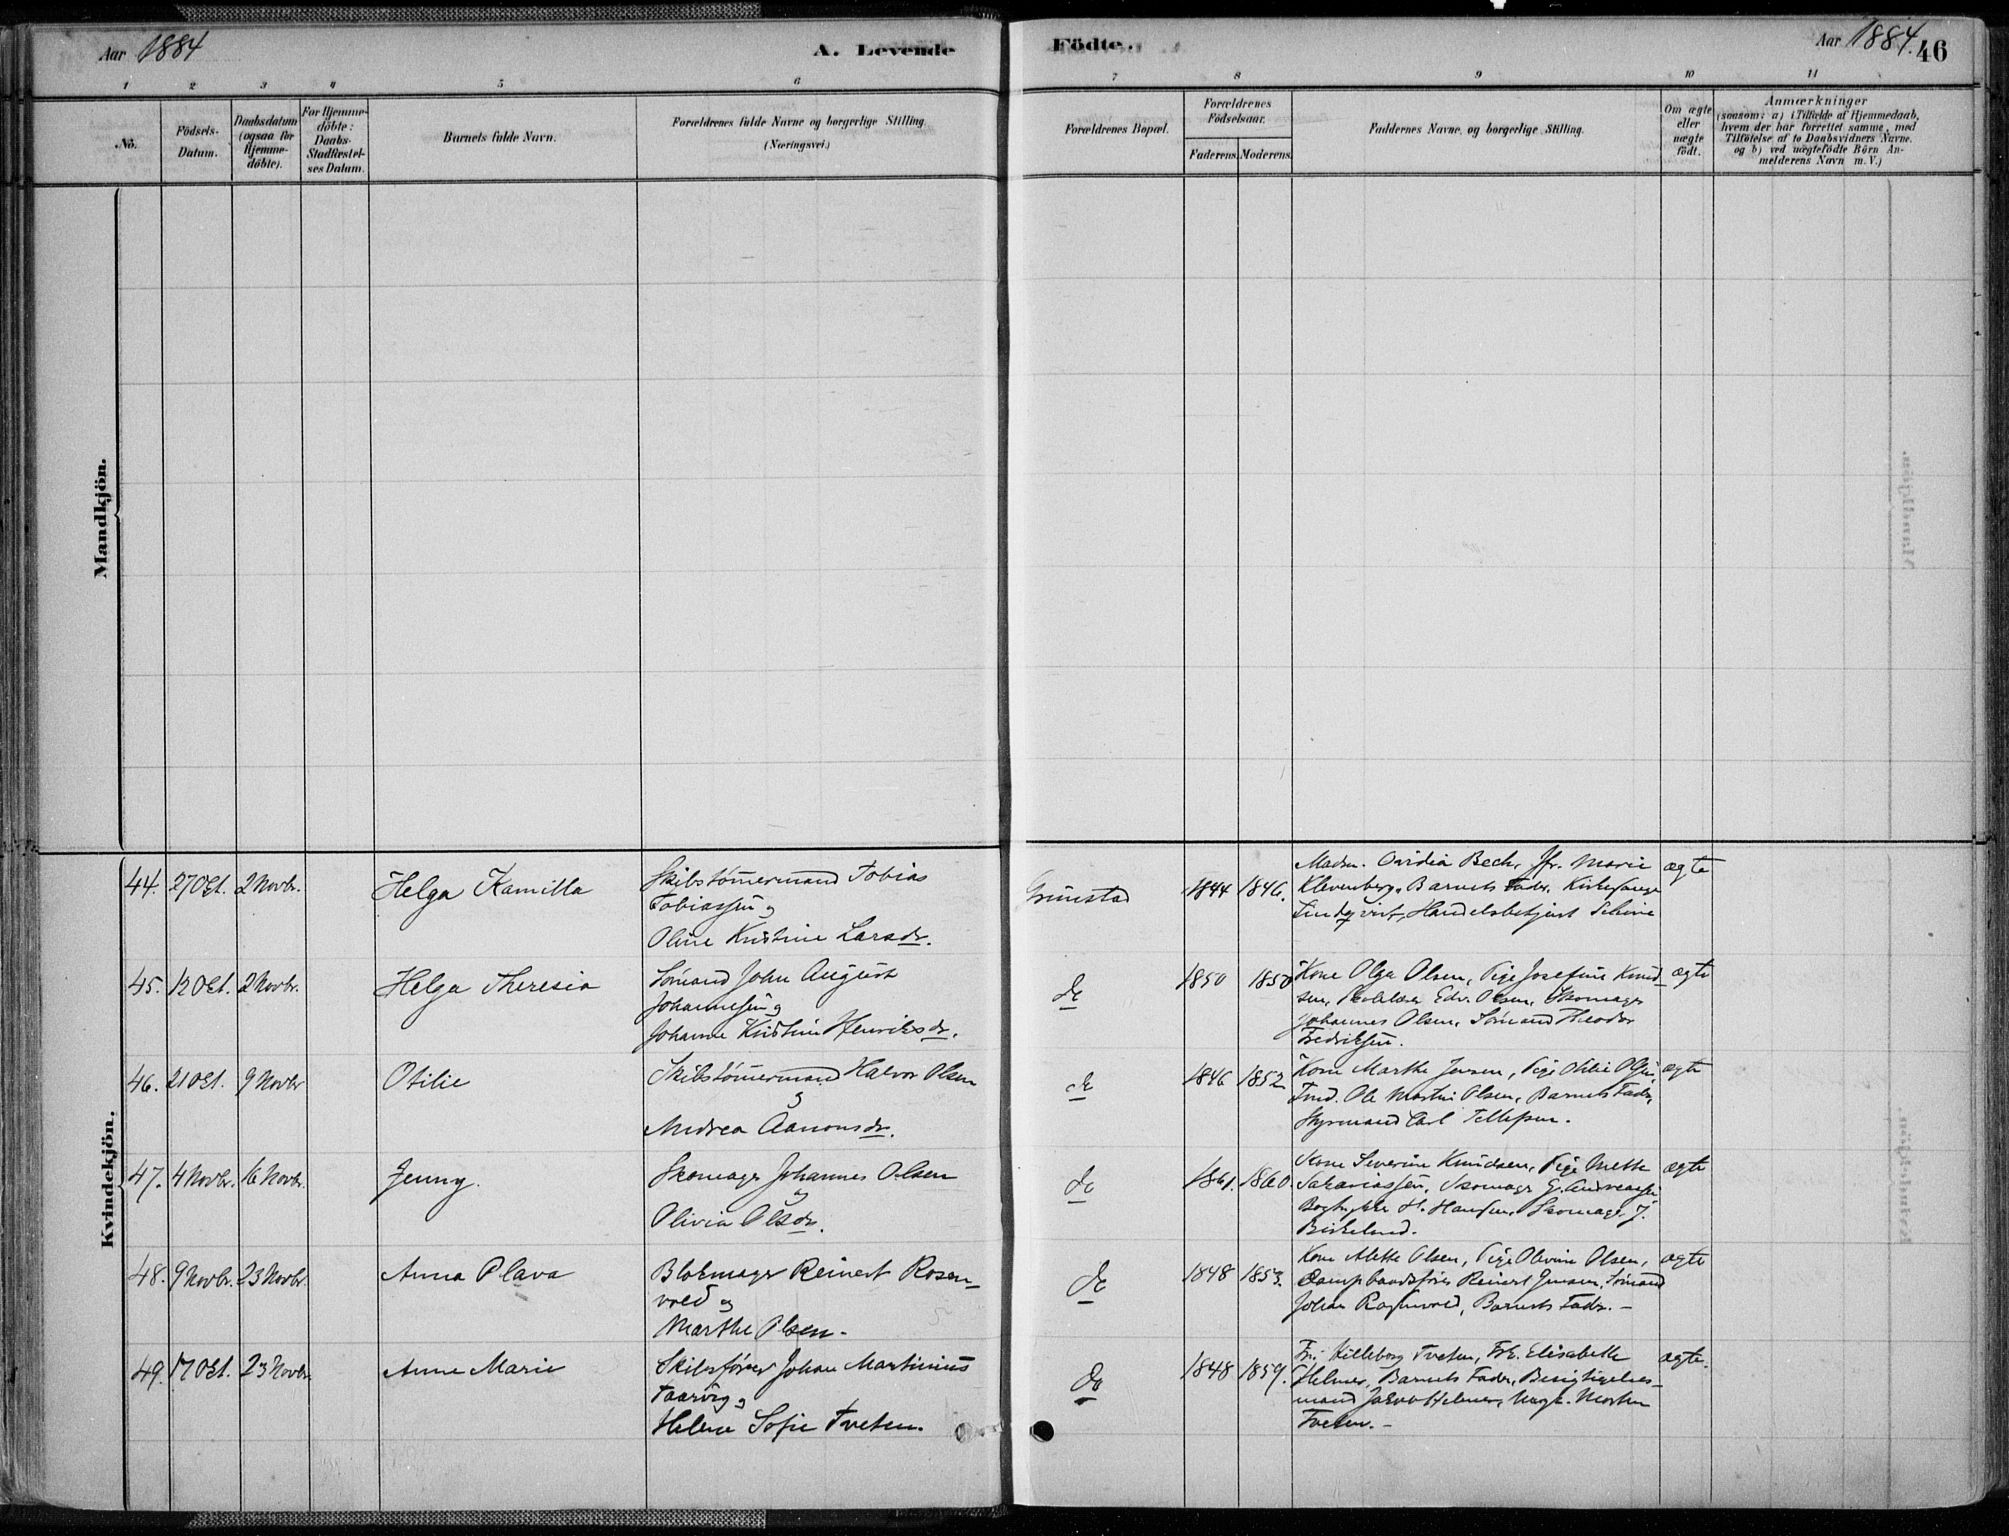 Aar 1884
A. Levende
Födte.
Aar 1884.
46
1 2 3 4 5 6 7 8 9 10 11
No.
Födsels-
Datum.
Daabsdatum
(ogsaa for
Hjemme-
döbte).
For Hjemme-
döbte:
Daabs-
Stadfæstel-
ses Datum.
Barnets fulde Navn.
Forældrenes fulde Navne og borgerlige Stilling.
(Næringsvei.)
Forældrenes Bopæl.
Forældrenes
Födselsaar.
Faderens. Moderens.
Faddernes Navne og borgerlige Stilling.
Om ægte
eller
uægte
født.
Anmærkninger
(saasom: a) i Tilfælde af Hjemmedaab,
hvem der har forrettet samme, med
Tilföielse af to Daabsvidners Navne.
og b) ved uægtefödte Börn An-
melderens Navn m.V.)
Mandkjön.
Kvindekjön.
44. 27 Oct. 2 Novbr. Helga Kamilla
Skibstømmermand Tobias
Tobiassen og
Oline Kristine Larsdr.
Grimstad 1844 1846.
Madm. Ovidia Bech, Jfr. Marie
Klevenberg, Barnets Fader, Kirkesanger
Lindqvist, Handelsbetjent
ægte
45. 12 Oct. 2 Novbr. Helga Theresia
Sømand John August
Johannesen og
Johanne Kristine Henriksdr.
do 1850 1850
Kone Olga Olsen, Pige Josefine Knud-
sen, Edv. Olsen, Skomager
Johannes Olsen, Sømand Theodor
Fredriksen.
ægte
46. 21 Oct. 9 Novbr Otilie
Skibstømmermand Halvor Olsen
og
Andrea Aanonsdr.
do 1846 1852
Kone Marthe Jensen, Pige Otilie Olsen,
Tmd. Ole Martin Olsen, Barnets Fader,
Styrmand Carl Tellefsen.
ægte
47. 4 Novbr. 16 Novbr. Jenny.
Skomager Johannes Olsen
og
Olivia Olsdr.
do 1861. 1860.
Kone Severine Knudsen, Pige Mette
Sakariassen, Skomager G. Andreassen
Bogtrykker H. Hansen, Skomager J.
Birkelund.
ægte
48. 9 Novbr. 23 Novbr. Anna Olava
Blokmager Reinert Rosen-
vold og
Marthe Olsen.
do 1848 1853.
Kone Alette Olsen, Pige Olevine Olsen,
Dampbaadsfører Reinert Jensen, Sømand
Johan Rosenvold, Barnets Fader. -
ægte
49. 17 Oct. 23 Novbr. Anne Marie
Skibsfører Johan Martinius
Taarvig og
Helene Sofie Tveten.
do 1848 1859.
Fru Killeborg Tveten, Frk. Elisabeth
Helmer, Barnets Fader, Besigtigelses-
mand Jakob Helmer, Ungk. Morten
Tveten. -
ægte.